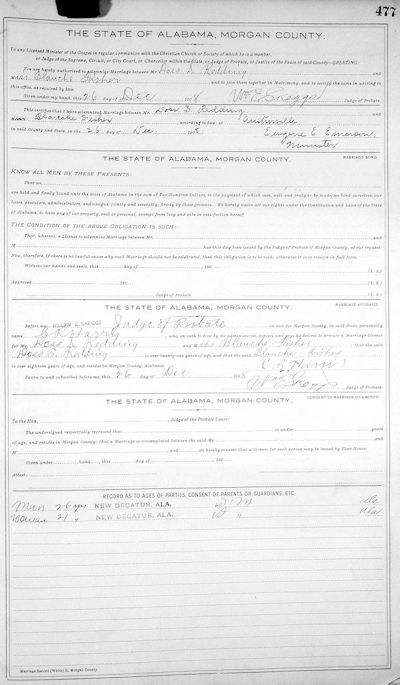 477
THE STATE OF ALABAMA, MORGAN COUNTY.
To any Licensed Minister of the Gospel in regular communion with the Christian Church or Society of which he is a member,
or Judge of the Supreme, Circuit, or City Court, or Chancellor within the State, or Judge of Probate, or Justice of the Peace of said County—GREETING:
You are hereby authorized to solemnize Marriage between Mr. Doss S. Redding and
Miss Blanche Fisher and to join them together in Matrimony, and to certify the same in writing to
this office, as required by law.
Given under my hand, this 26 day of Dec 190 8 Wm E. Skeggs Judge of Probate.
This certifies that I have solemnized Marriage between Mr. Doss S. Redding and
M Blanche Fisher according to law, at Austinville
in said County and State, on the 26 day of Dec. 190 8. Eugene E. Emerson,
Minister
THE STATE OF ALABAMA, MORGAN COUNTY. MARRIAGE BOND.
KNOW ALL MEN BY THESE PRESENTS:
That we,
are held and firmly bound unto the State of Alabama in the sum of Two Hundred Dollars, to the payment of which sum, well and truly to be made, we bind ourselves, our
heirs, executors, administrators, and assigns, jointly and severally, firmly by these presents. We hereby waive all our rights under the Constitution and Laws of the State
of Alabama, to have any of our property, real or personal, exempt from levy and sale in satisfaction hereof.
THE CONDITION OF THE ABOVE OBLIGATION IS SUCH:
That, whereas, a License to solemnize Marriage between Mr. and
M has this day been issued by the Judge of Probate of Morgan County, at our request:
Now, therefore, if there is no lawful cause why such Marriage should not be celebrated, then this obligation is to be void; otherwise it is to remain in full force.
Witness our hands and seals, this day of 190 (L. S.)
Approved 190 (L. S.)
Judge of Probate. (L. S.)
THE STATE OF ALABAMA, MORGAN COUNTY. MARRIAGE AFFIDAVIT.
Before me, WILLIAM E. SKEGGS Judge of Probate in and for Morgan County, in said State, personally
came who, on oath to him by me administered, deposes and says: he desires to procure a Marriage License
for Mr. Doss S. Redding and Miss Blanche Fisher that the said
Doss S. Redding is over twenty-one years of age, and that the said Blanche Fisher
is over eighteen years of age, and resides in Morgan County, Alabama.
Sworn to and subscribed before me, this 26 day of Dec 190 8
Wm E Skeggs Judge of Probate.
THE STATE OF ALABAMA, MORGAN COUNTY. CONSENT TO MARRIAGE OF A MINOR.
To the Hon. Judge of the Probate Court:
The undersigned respectfully represent that is under years
of age, and resides in Morgan County; that a Marriage is contemplated between the said Mr. and
M and do hereby consent that a License for such person may be issued by Your Honor.
Given under hand, this day of 190
Attest:
RECORD AS TO AGES OF PARTIES, CONSENT OF PARENTS OR GUARDIANS, ETC.
Man 26 yrs NEW DECATUR, ALA. 1st M
Woman 21 " NEW DECATUR, ALA. 1st " Ala
Marriage Record (White) H, Morgan County.